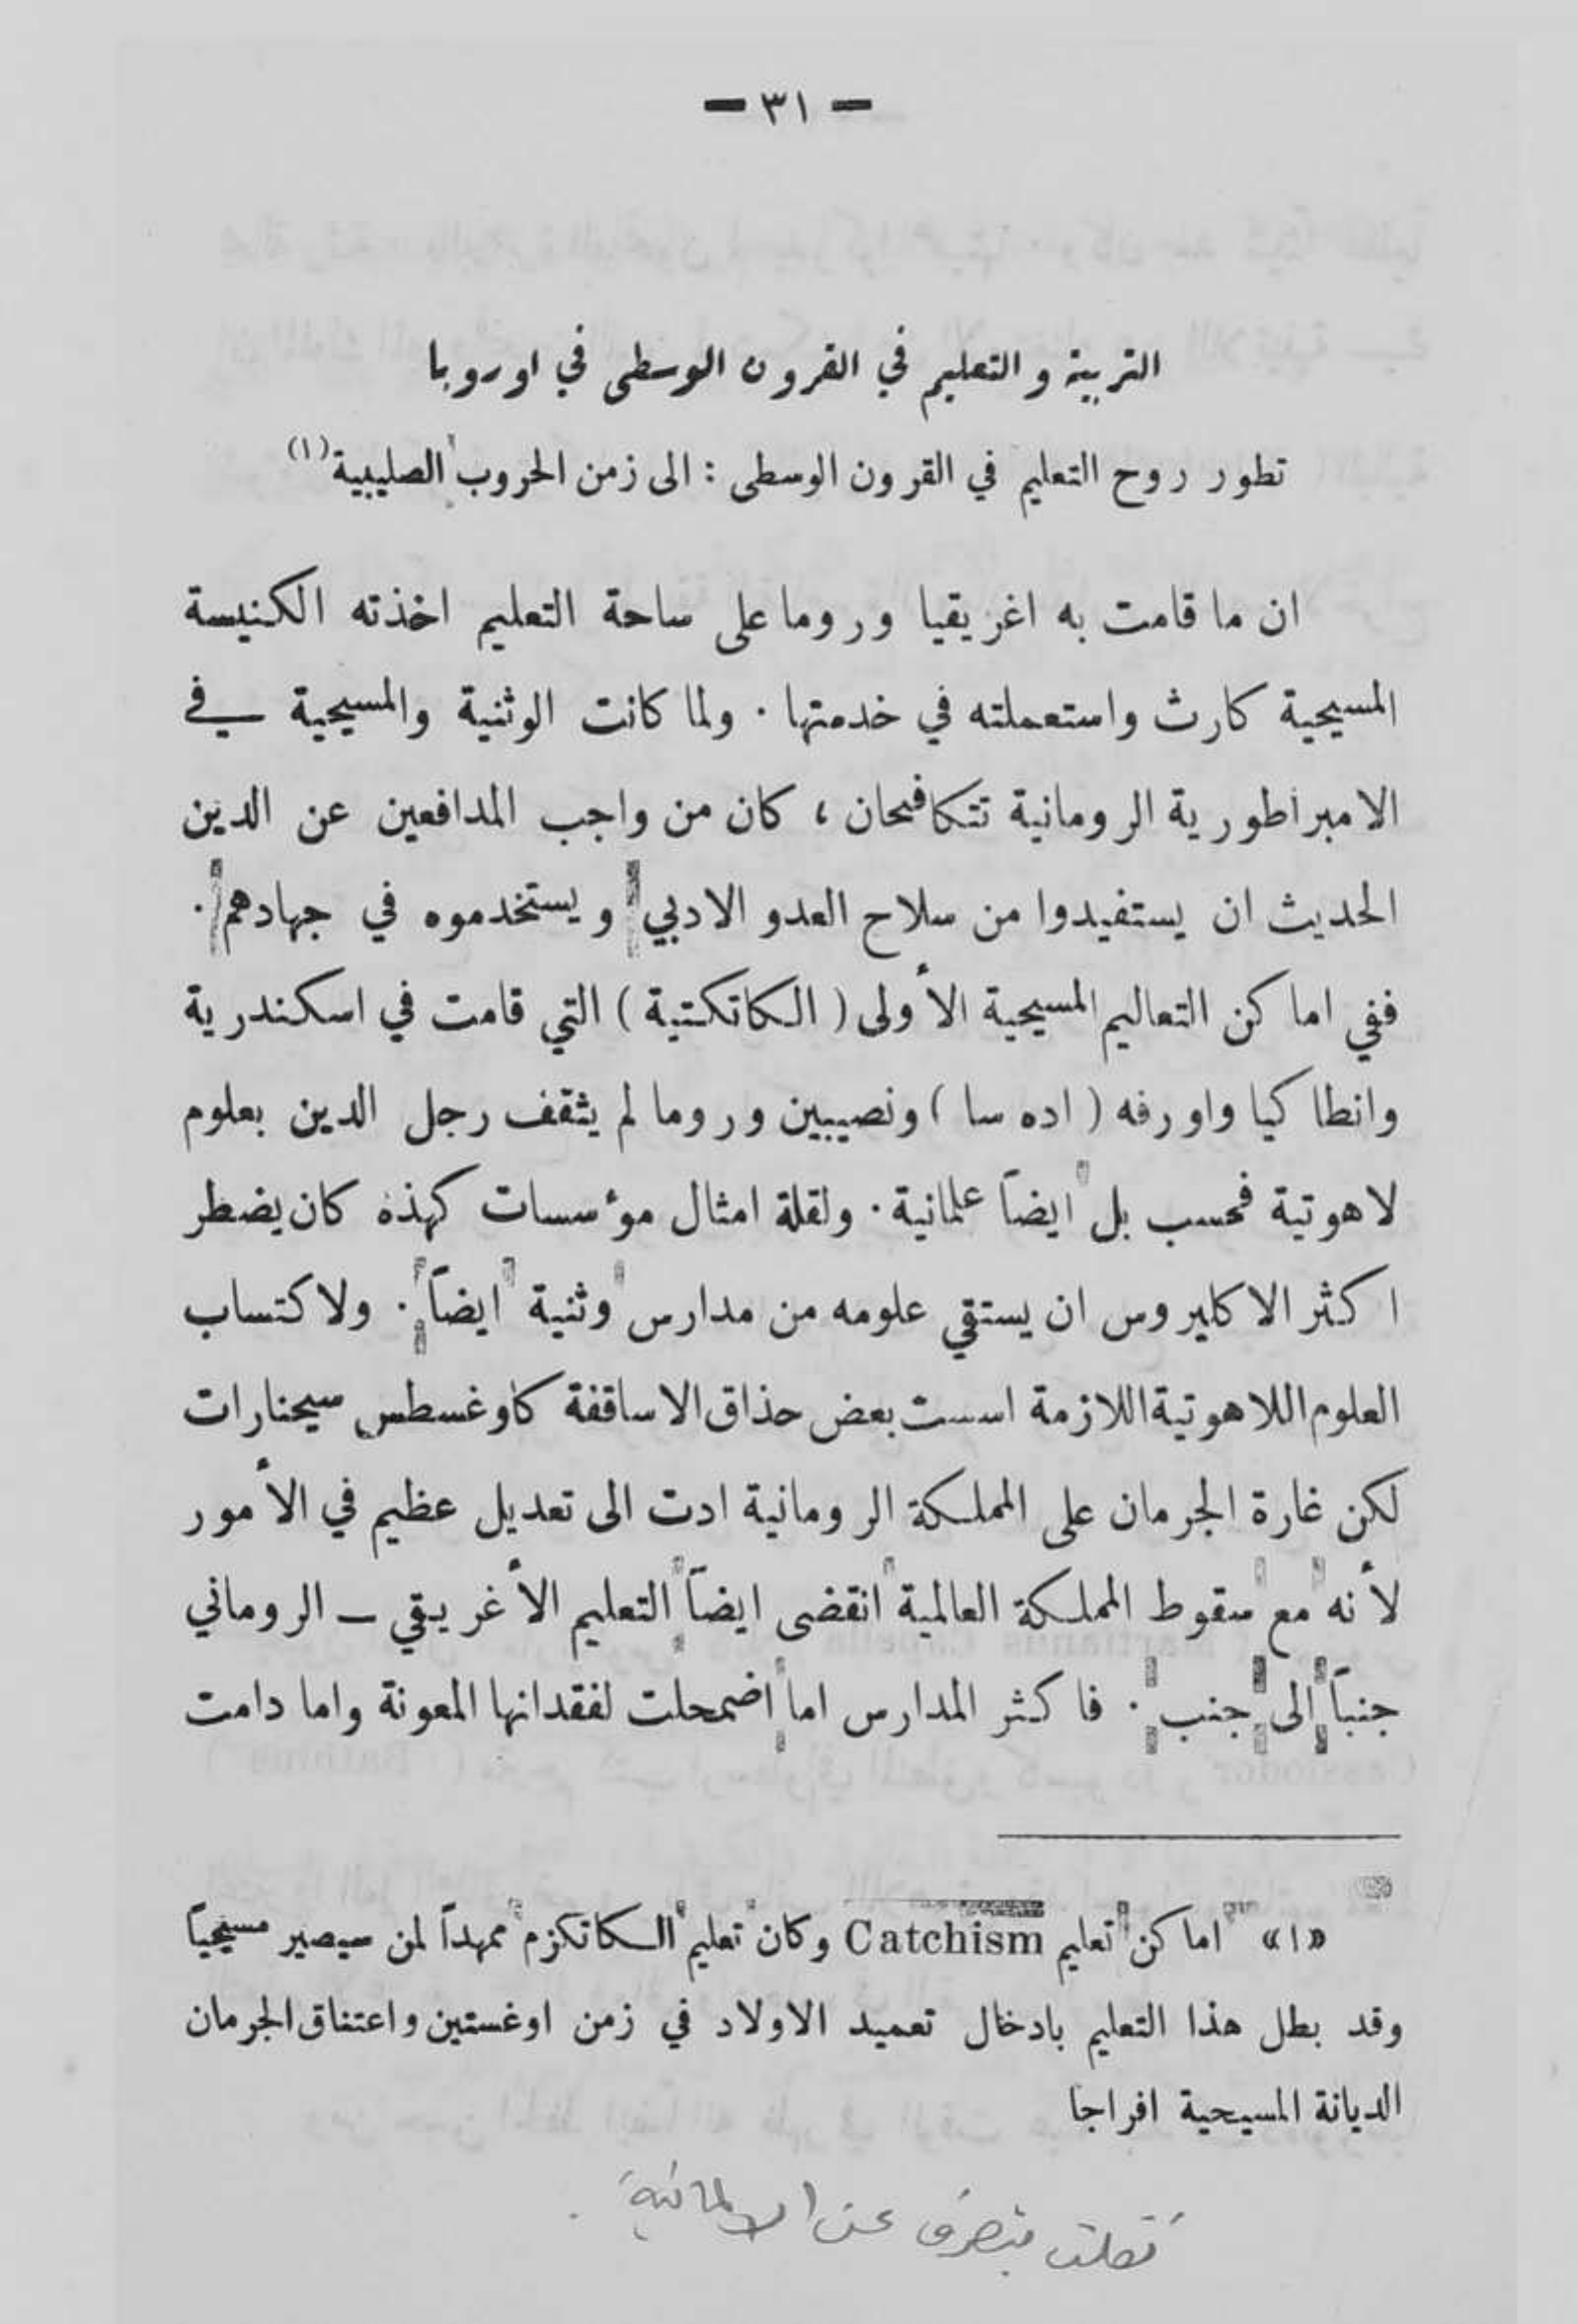 — ٣١ —
التربية والتعليم في القرون الوسطى في اوروبا
تطور روح التعليم في القرون الوسطى : الى زمن الحروب الصليبية (١)
ان ما قامت به اغريقيا وروما على ساحة التعليم اخذته الكنيسة
المسيحية كارث واستعملته في خدمتها . ولما كانت الوثنية والمسيحية في
الامبراطورية الرومانية تتكافحان ، كان من واجب المدافعين عن الدين
الحديث ان يستفيدوا من سلاح العدو الادبي ويستخدموه في جهادهم .
ففي اماكن التعاليم المسيحية الأولى ( الكاتكتية ) التي قامت في اسكندرية
وانطاكيا واورفه ( اده سا ) ونصيبين وروما لم يثقف رجل الدين بعلوم
لاهوتية فحسب بل ايضاً علمانية . ولقلة امثال مؤسسات كهذه كان يضطر
اكثر الاكليروس ان يستقي علومه من مدارس وثنية ايضاً . ولاكتساب
العلوم اللاهوتية اللازمة اسست بعض حذاق الاساقفة كاوغسطس سيحنارات
لكن غارة الجرمان على المملكة الرومانية ادت الى تعديل عظيم في الأمور
لأنه مع سقوط المملكة العالمية انقضى ايضاً التعليم الأغريقي — الروماني
جنباً الى جنب . فاكثر المدارس اما اضمحلت لفقدانها المعونة واما دامت
«١» اماكن تعليم Catchism وكان تعليم الكاتكزم ممهداً لمن سيصير مسيحياً
وقد بطل هذا التعليم بادخال تعميد الاولاد في زمن اوغستين واعتناق الجرمان
الديانة المسيحية افراجا
نقلت بتصرف عن الالمانية .